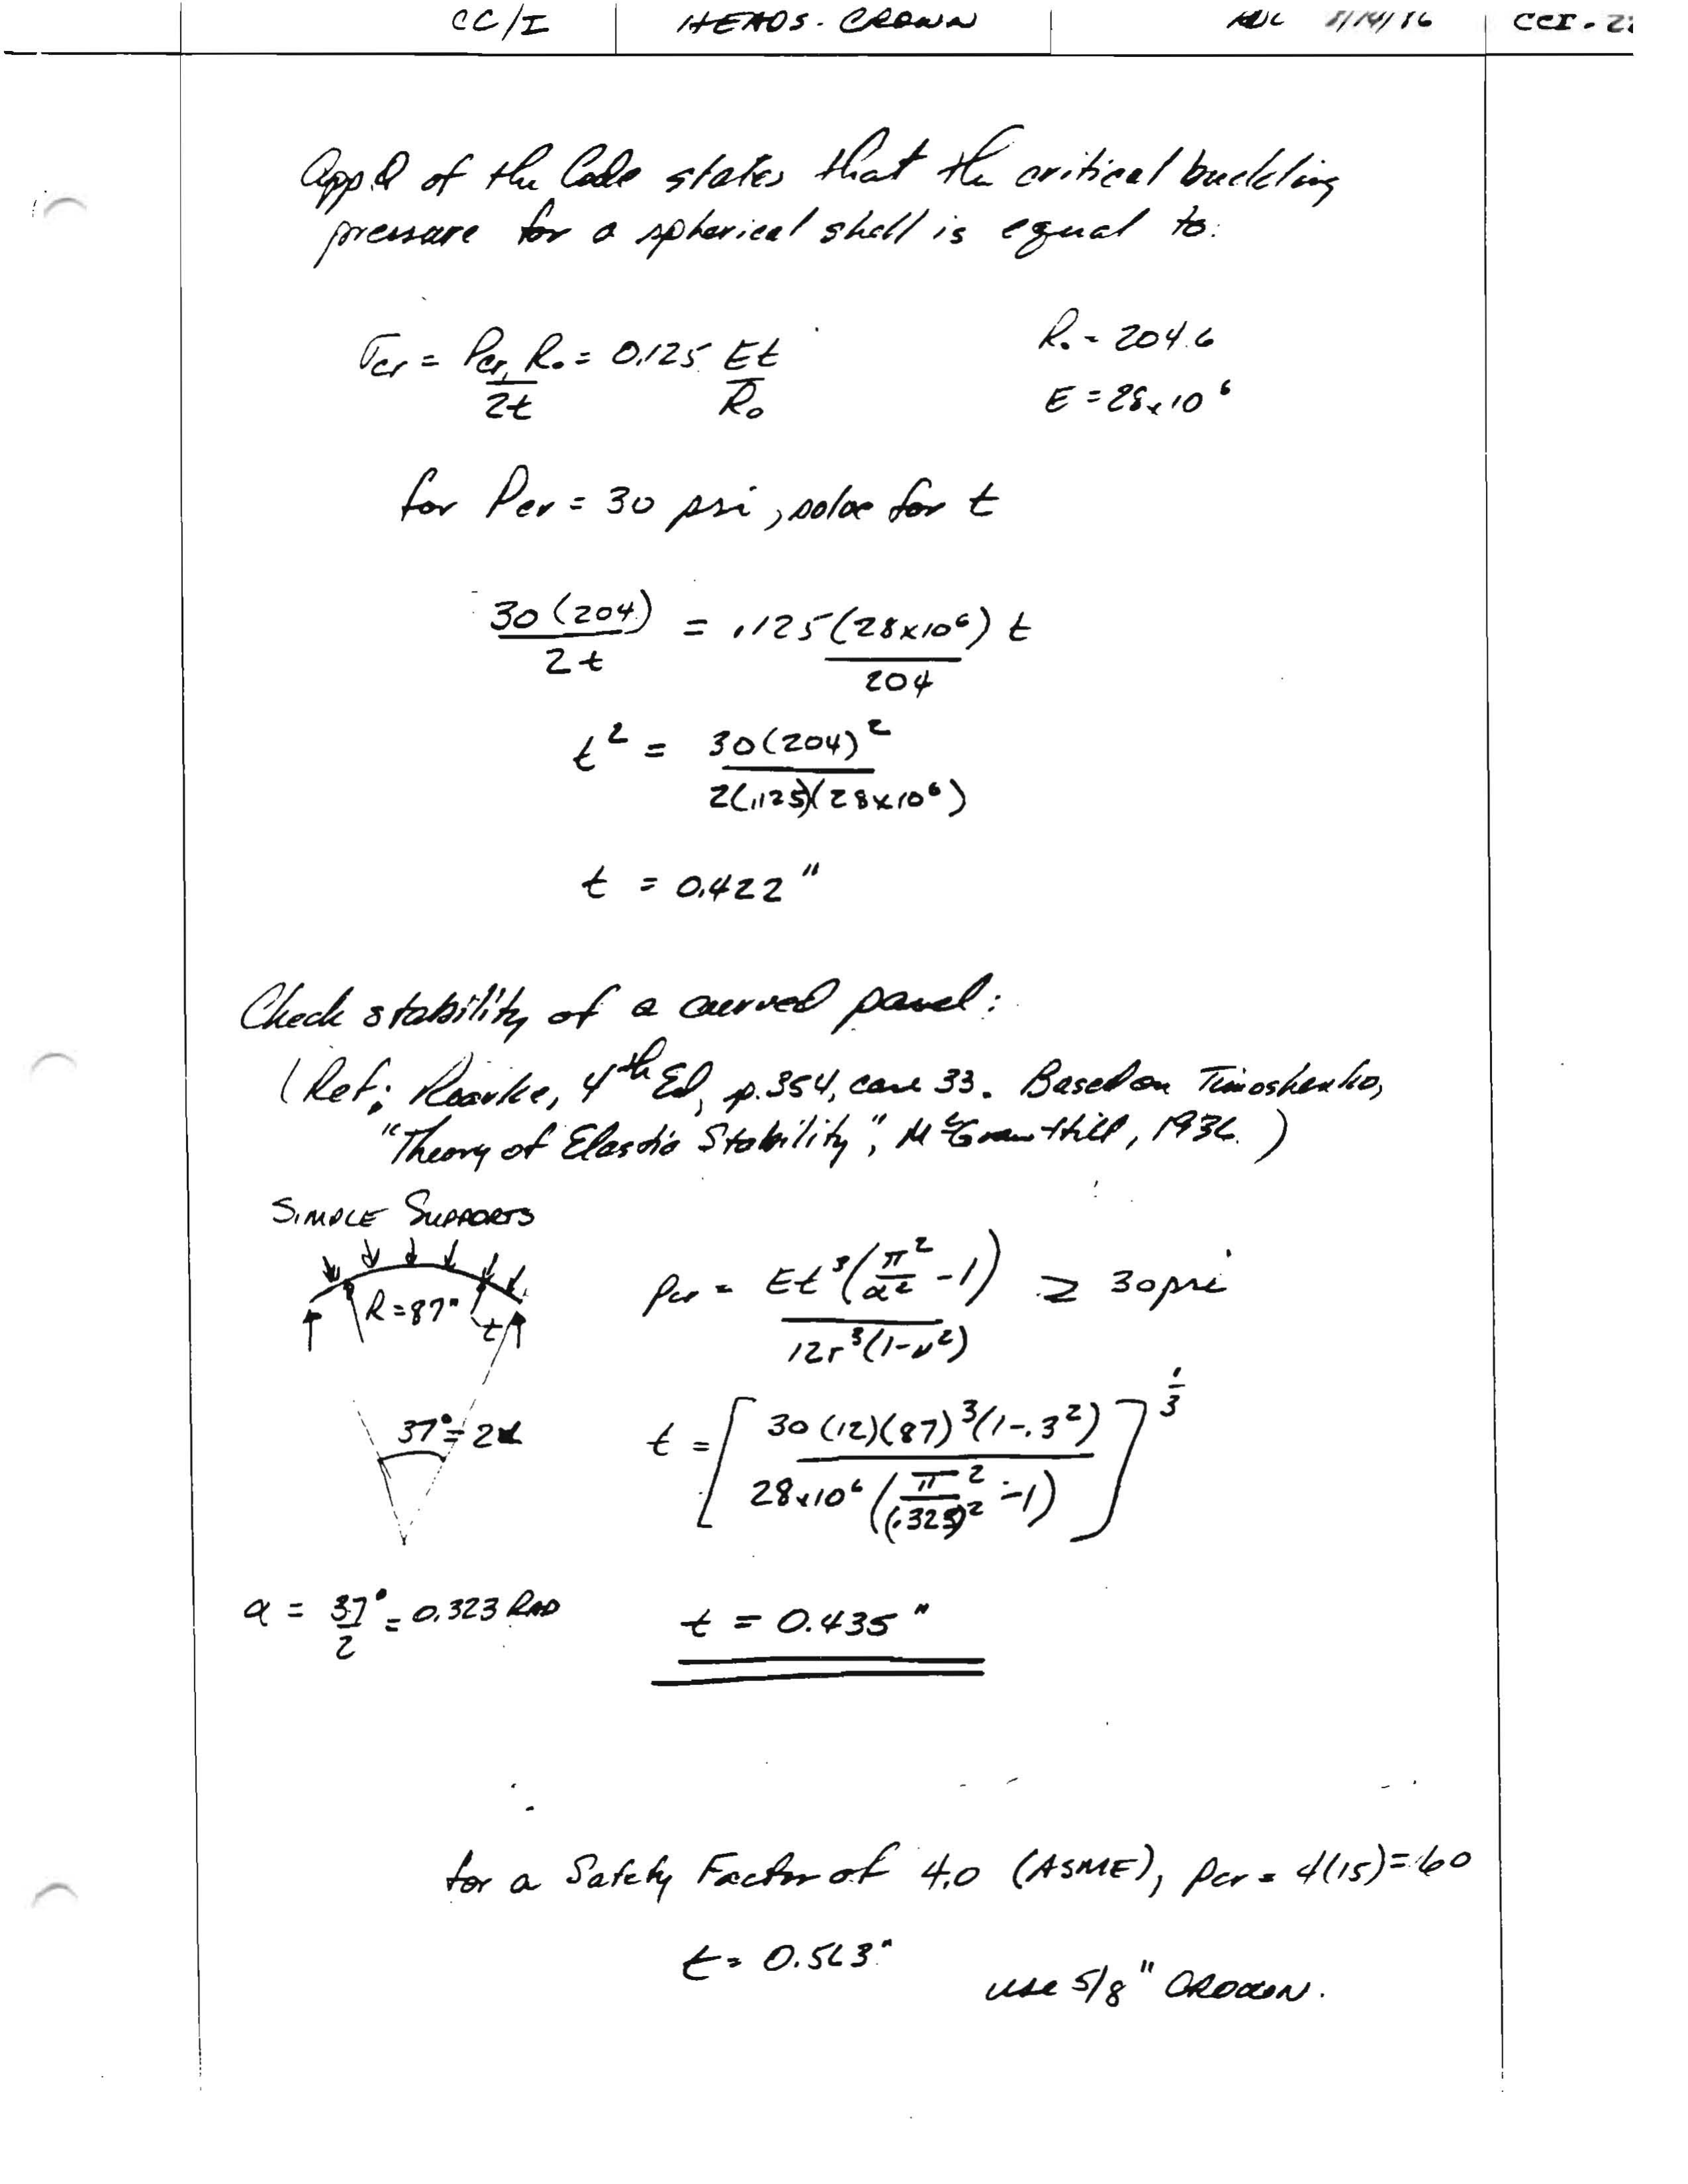 CC/I HEADS - CROWN 8/14/86 CCI - 2
App Q of the Code states that the critical buckling
pressure for a spherical shell is equal to:
σcr = Pcr R₀/2t = 0.125 Et/R₀
R₀ = 204.6
E = 28×10⁶
for Pcr = 30 psi, solve for t
30(204)/2t = .125(28×10⁶)t/204
t² = 30(204)²/2(.125)(28×10⁶)
t = 0.422"
Check stability of a curved panel:
(Ref: Roarke, 4th Ed, p.354, case 33. Based on Timoshenko,
"Theory of Elastic Stability", McGraw Hill, 1936.)
SIMPLE SUPPORTS
R = 87"
t
37° = 2α
pcr = Et³(π²/α² - 1)/12r³(1-ν²) ≥ 30 psi
t = [30(12)(87)³(1-.3²)/28×10⁶(π²/(.323)² - 1)]^1/3
α = 37°/2 = 0.323 RAD
t = 0.435"
for a Safety Factor of 4.0 (ASME), pcr = 4(15) = 60
t = 0.563"
use 5/8" CROWN.